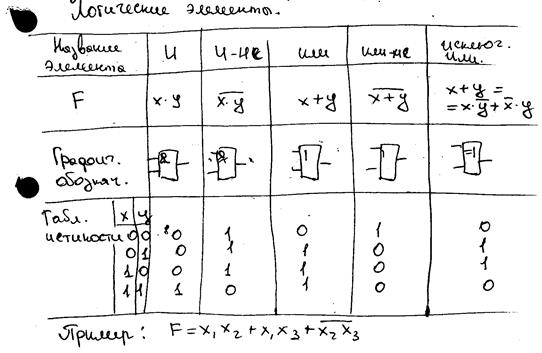 Логические элементы.
Название элемента | И | И-НЕ | или | или-не | исключ. или.
F | x·y | $\overline{x \cdot y}$ | x+y | $\overline{x+y}$ | x+y = = x·$\overline{y}$ + $\overline{x}$·y
Графич. обознач. | & | & | 1 | 1 | =1
Табл. истиности | x | y
0 0 | 0 | 1 | 0 | 1 | 0
0 1 | 0 | 1 | 1 | 0 | 1
1 0 | 0 | 1 | 1 | 0 | 1
1 1 | 1 | 0 | 1 | 0 | 0
Пример: F = x₁x₂ + x₁x₃ + $\overline{x_2 x_3}$